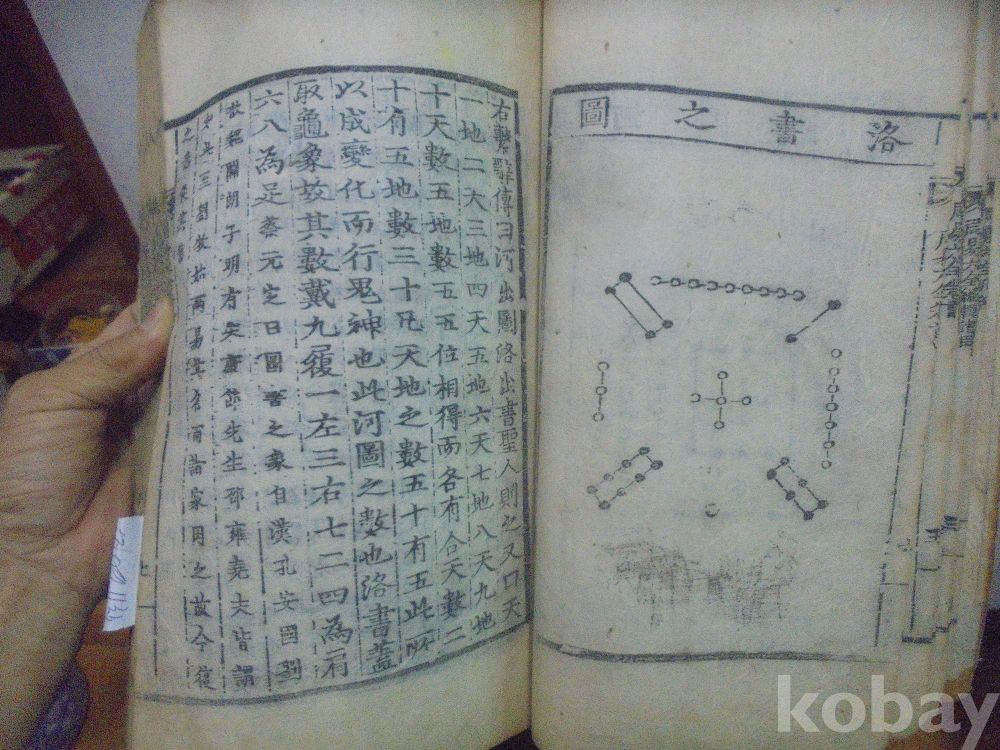 洛書之圖
右繫辭傳曰河出圖洛出書聖人則之又曰天
一地二天三地四天五地六天七地八天九地
十天數五地數五五位相得而各有合天數二
十有五地數三十凡天地之數五十有五此所
以成變化而行鬼神也此河圖之數也洛書蓋
取龜象故其數戴九履一左三右七二四為肩
六八為足蔡元定曰圖書之象自漢孔安國劉
歆魏關朗子明有宋康節先生邵雍堯夫皆謂
如此至劉牧始兩易其名而諸家因之故今復
之悉從其舊
kobay